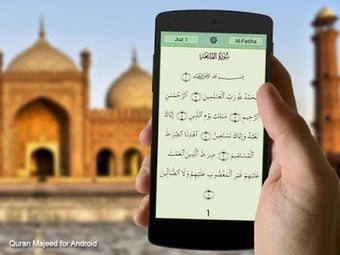 Juz 1 Al-Fatiha
سُورَةُ الْفَاتِحَةِ
بِسْمِ اللَّهِ الرَّحْمَٰنِ الرَّحِيمِ
الْحَمْدُ لِلَّهِ رَبِّ الْعَالَمِينَ الرَّحْمَٰنِ
الرَّحِيمِ مَالِكِ يَوْمِ الدِّينِ إِيَّاكَ
نَعْبُدُ وَإِيَّاكَ نَسْتَعِينُ اهْدِنَا الصِّرَاطَ
الْمُسْتَقِيمَ صِرَاطَ الَّذِينَ أَنْعَمْتَ
عَلَيْهِمْ غَيْرِ الْمَغْضُوبِ عَلَيْهِمْ وَلَا الضَّالِّينَ
1
Quran Majeed for Android